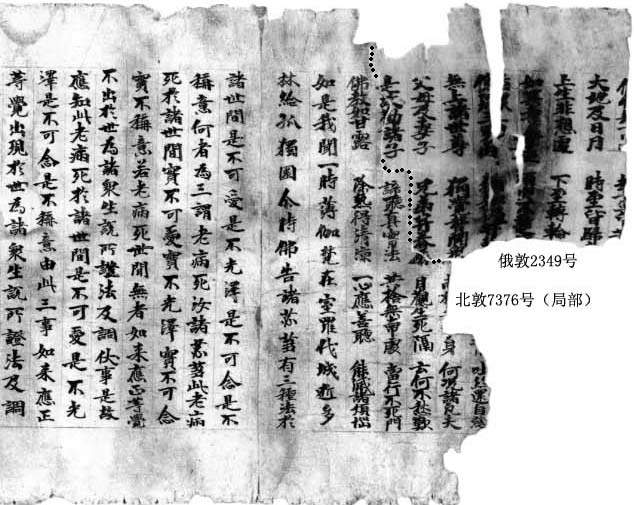 大地及日月 時至皆歸
上生非想處 下至轉輪
吐絲還自纏
無上諸世尊 獨覺聲聞 身 何況諸凡夫
父母及妻子 兄弟并眷屬 目觀生死隔 云何不愁歎
是故勸諸子 諦聽真實法 共捨無常處 當行不死門
佛教如甘露 除熱得清涼 一心應善聽 能滅諸煩惱
如是我聞一時薄伽梵在室羅伐城逝多
林給孤獨園尒時佛告諸苾芻有三種法於
諸世間是不可愛是不光澤是不可念是不
稱意何者為三謂老病死汝諸苾芻此老病
死於諸世間實不可愛實不光澤實不可念
實不稱意若老病死世間無者如來應正等覺
不出於世為諸衆生說所證法及調伏事是故
應知此老病死於諸世間是不可愛是不光
澤是不可念是不稱意由此三事如來應正
等覺出現於世為諸衆生說所證法及調
俄敦2349号
北敦7376号（局部）